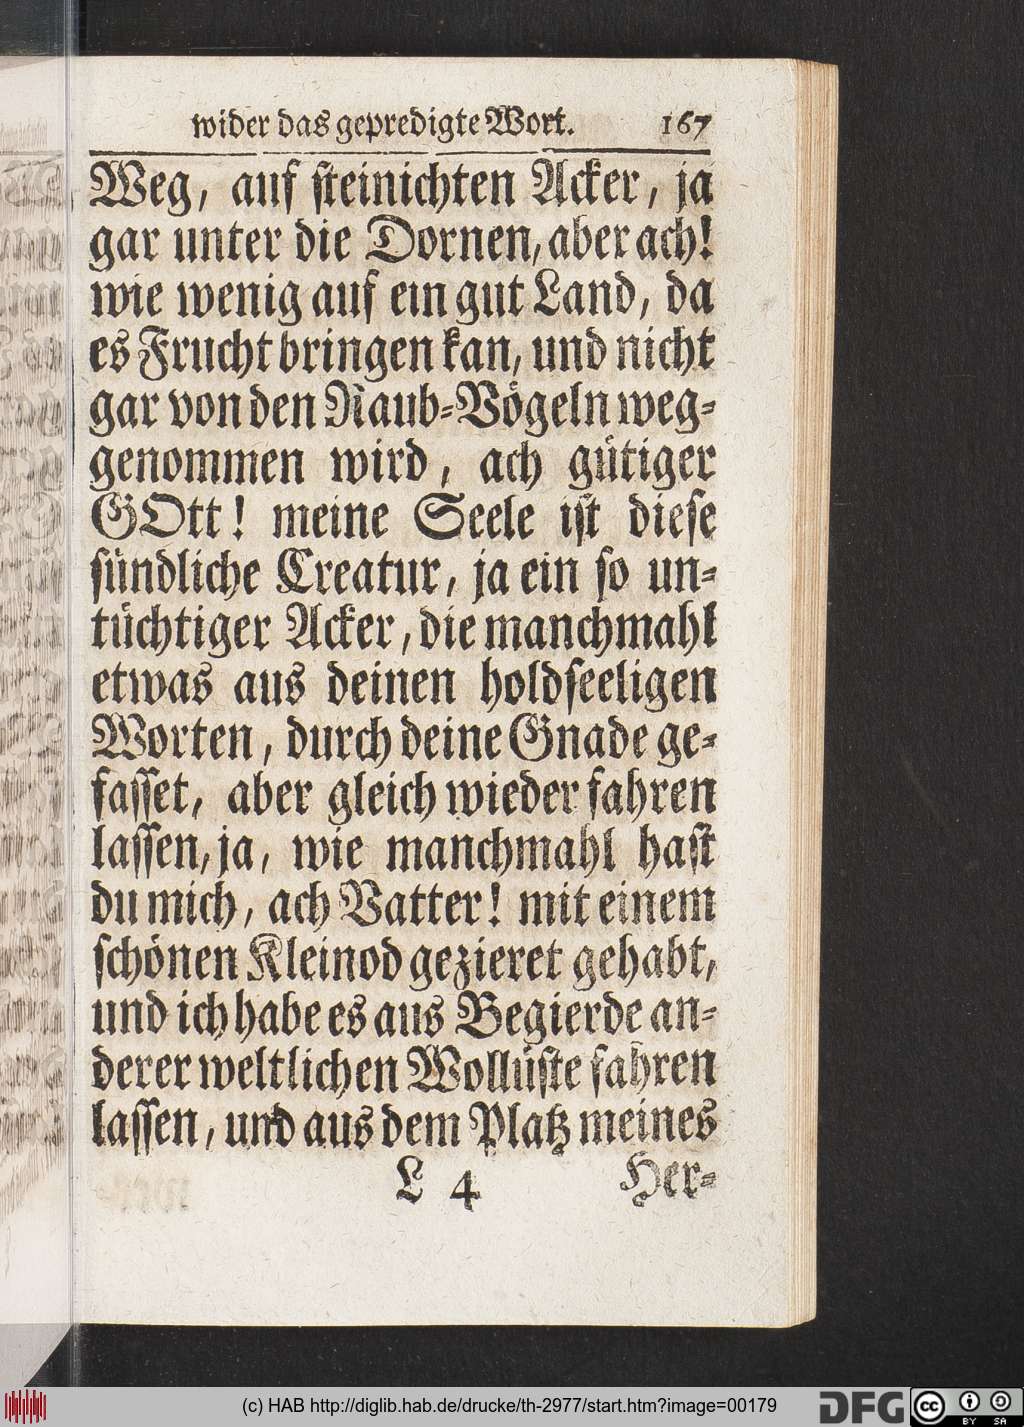 wider das gepredigte Wort. 167
Weg, auf steinichten Acker, ja
gar unter die Dornen, aber ach!
wie wenig auf ein gut Land, da
es Frucht bringen kan, und nicht
gar von den Raub-Vögeln weg-
genommen wird, ach gütiger
GOtt! meine Seele ist diese
sündliche Creatur, ja ein so un-
tüchtiger Acker, die manchmahl
etwas aus deinen holdseeligen
Worten, durch deine Gnade ge-
fasset, aber gleich wieder fahren
lassen, ja, wie manchmahl hast
du mich, ach Vatter! mit einem
schönen Kleinod gezieret gehabt,
und ich habe es aus Begierde an-
derer weltlichen Wollüste fahren
lassen, und aus dem Platz meines
L 4 Her-
(c) HAB http://diglib.hab.de/drucke/th-2977/start.htm?image=00179
DFG
cc BY SA